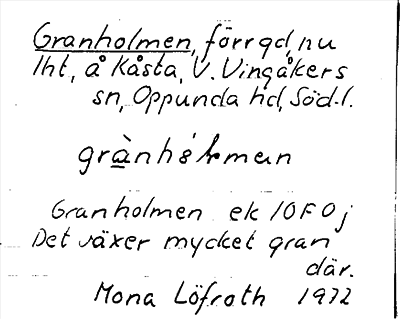 Granholmen, förr gd, nu
lht, å Kåsta, V. Vingåkers
sn, Oppunda hd, Söd-l.
Granholmen ek 10F0j
Det växer mycket gran
där.
Mona Löfroth 1972